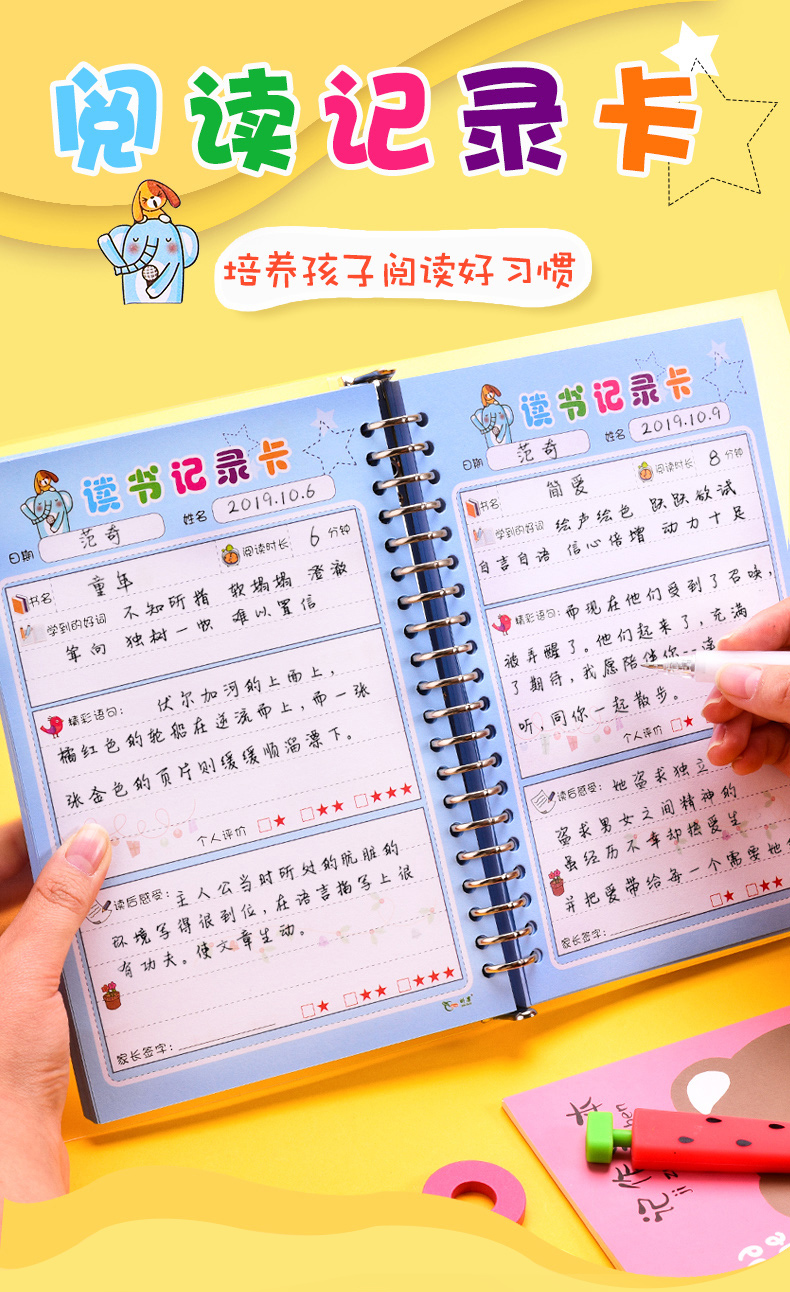 阅读记录卡
培养孩子阅读好习惯
读书记录卡
日期 范奇 姓名 2019.10.6
书名 童年 阅读时长 6 分钟
学到的好词 不知所措 软塌塌 澄澈
穹向 独树一帜 难以置信
精彩语句: 伏尔加河的上面上,
橘红色的轮船在逆流而上,而一张
张金色的页片则缓缓顺溜漂下。
个人评价 □★ □★★ □★★★
读后感受: 主人公当时所处的肮脏的
环境写得很到位,在语言描写上很
有功夫。使文章生动。
□★ □★★ □★★★
家长签字:
读书记录卡
日期 范奇 姓名 2019.10.9
书名 简爱 阅读时长 8 分钟
学到的好词 绘声绘色 跃跃欲试
自言自语 信心倍增 动力十足
精彩语句: 而现在他们受到了召唤,
被弄醒了。他们起来了,充满
了期待,我愿陪伴你--读
听,同你一起散步。
个人评价 □★
读后感受: 她追求独立
追求男女之间精神的
虽经历不幸却热爱生
并把爱带给每一个需要她
□★ □★★
家长签字:
记作本
jì z